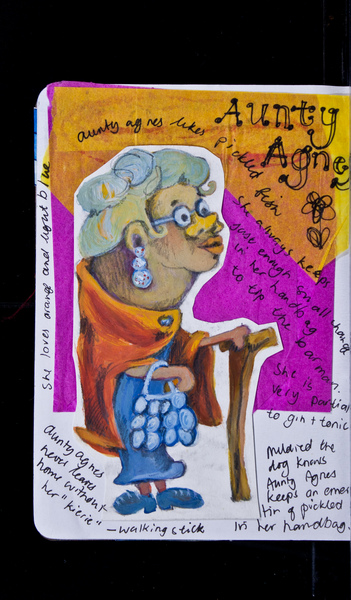 Aunty
Agnes
aunty agnes likes pickled fish
She always keeps
just enough small change
in her handbag
to tip the barman.
She is
very partial
to gin + tonic
she loves orange and light blue
aunty agnes
never leaves
home without
her "kierie"
– walking stick
Mildred the
dog knows
Aunty Agnes
keeps an emer
tin of pickled
in her handbag.